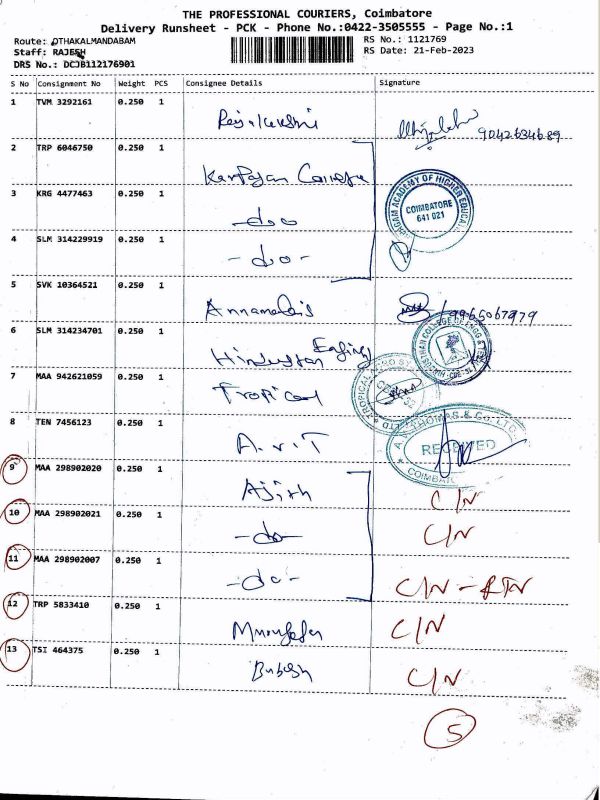 THE PROFESSIONAL COURIERS, Coimbatore
Delivery Runsheet - PCK - Phone No.:0422-3505555 - Page No.:1
Route: OTHAKALMANDABAM RS No.: 1121769
Staff: RAJESH RS Date: 21-Feb-2023
DRS No.: DCJB112176901
S No Consignment No Weight PCS Consignee Details Signature
1 TVM 3292161 0.250 1
9042634689
2 TRP 6046750 0.250 1
3 KRG 4477463 0.250 1 -do-
COIMBATORE
641 021
4 SLM 314229919 0.250 1 -do-
5 SVK 10364521 0.250 1 9965067979
6 SLM 314234701 0.250 1 Hindustan
7 MAA 942621059 0.250 1 Tropical
8 TEN 7456123 0.250 1 A.V.T
RECEIVED
9 MAA 298902020 0.250 1 Ajith C/N
10 MAA 298902021 0.250 1 -do- C/N
11 MAA 298902007 0.250 1 -do- C/N - RTN
12 TRP 5833410 0.250 1 C/N
13 TSI 464375 0.250 1 C/N
5